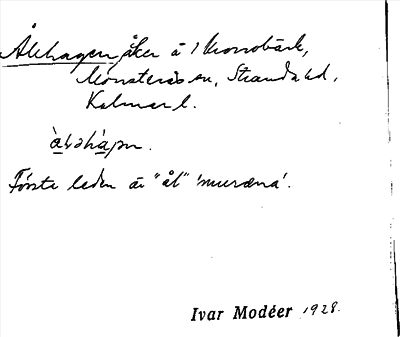 Ålehagen åker å 1 Kronobäck,
Mönsterås sn, Stranda hd,
Kalmar l.
Förste leden är "ål" 'muræna'.
Ivar Modéer 1928.